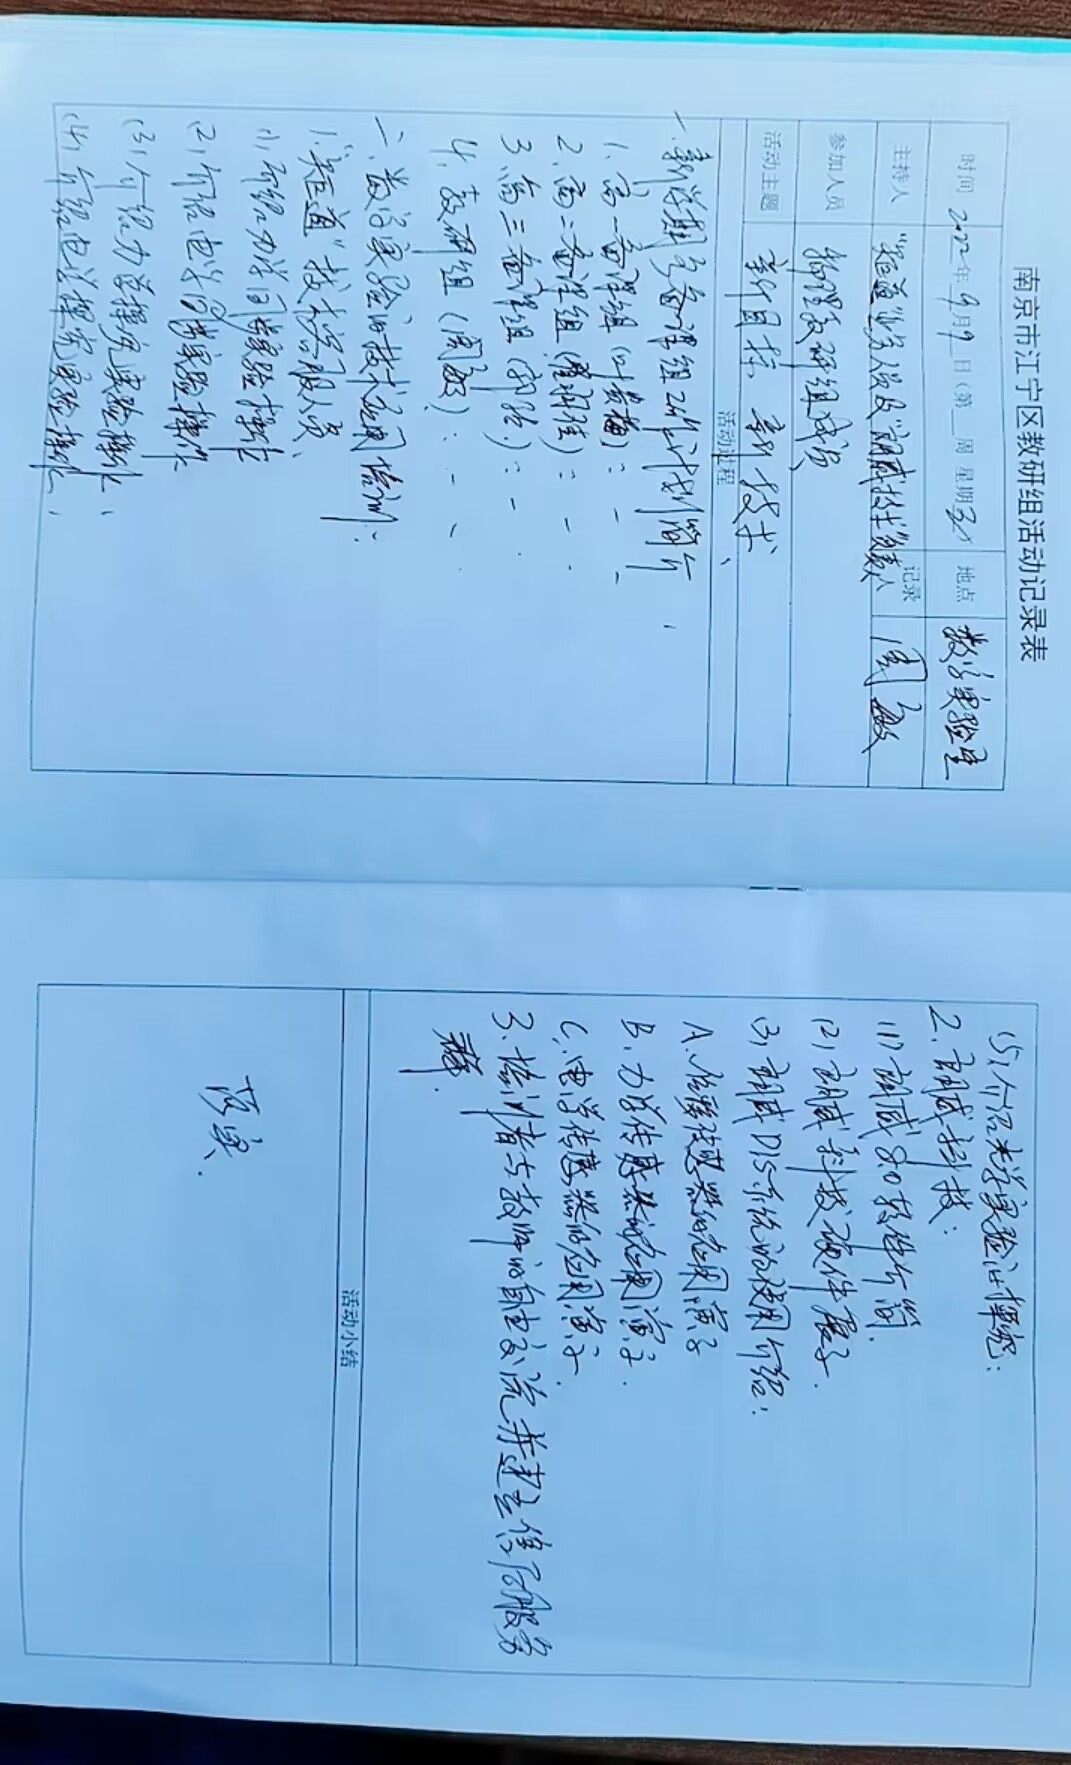 南京市江宁区教研组活动记录表
时间 2022年9月9日(第__周 星期五) 地点 数字实验室
主持人 "矩道"业务人员及"朗威技术"负责人 记录 周敏
参加人员 物理教研组成员
活动主题 新目标 新技术
活动过程
一、新学期各备课组工作计划简介
1. 高一备课组(叶贵梅): - -
2. 高二备课组(翟羽佳): - -
3. 高三备课组(郭验): - -
4. 教研组(周敏): - -
二、数字实验的技术应用培训:
1."矩道"技术客服人员、
(1)介绍力学同步实验操作
(2)介绍电学同步实验操作
(3)介绍力学探究实验操作、
(4)介绍电学探究实验操作、
(5)介绍光学实验的探究:
2. 朗威科技:
(1)朗威8.0软件介简.
(2)朗威科技硬件展示.
(3)朗威DIS系统的使用介绍:
A. 位移传感器的应用演示
B. 力学传感器的应用演示.
C. 电学传感器的应用演示.
3. 培训者与教师的自由交流并建立售后服务
群.
活动小结
落实.